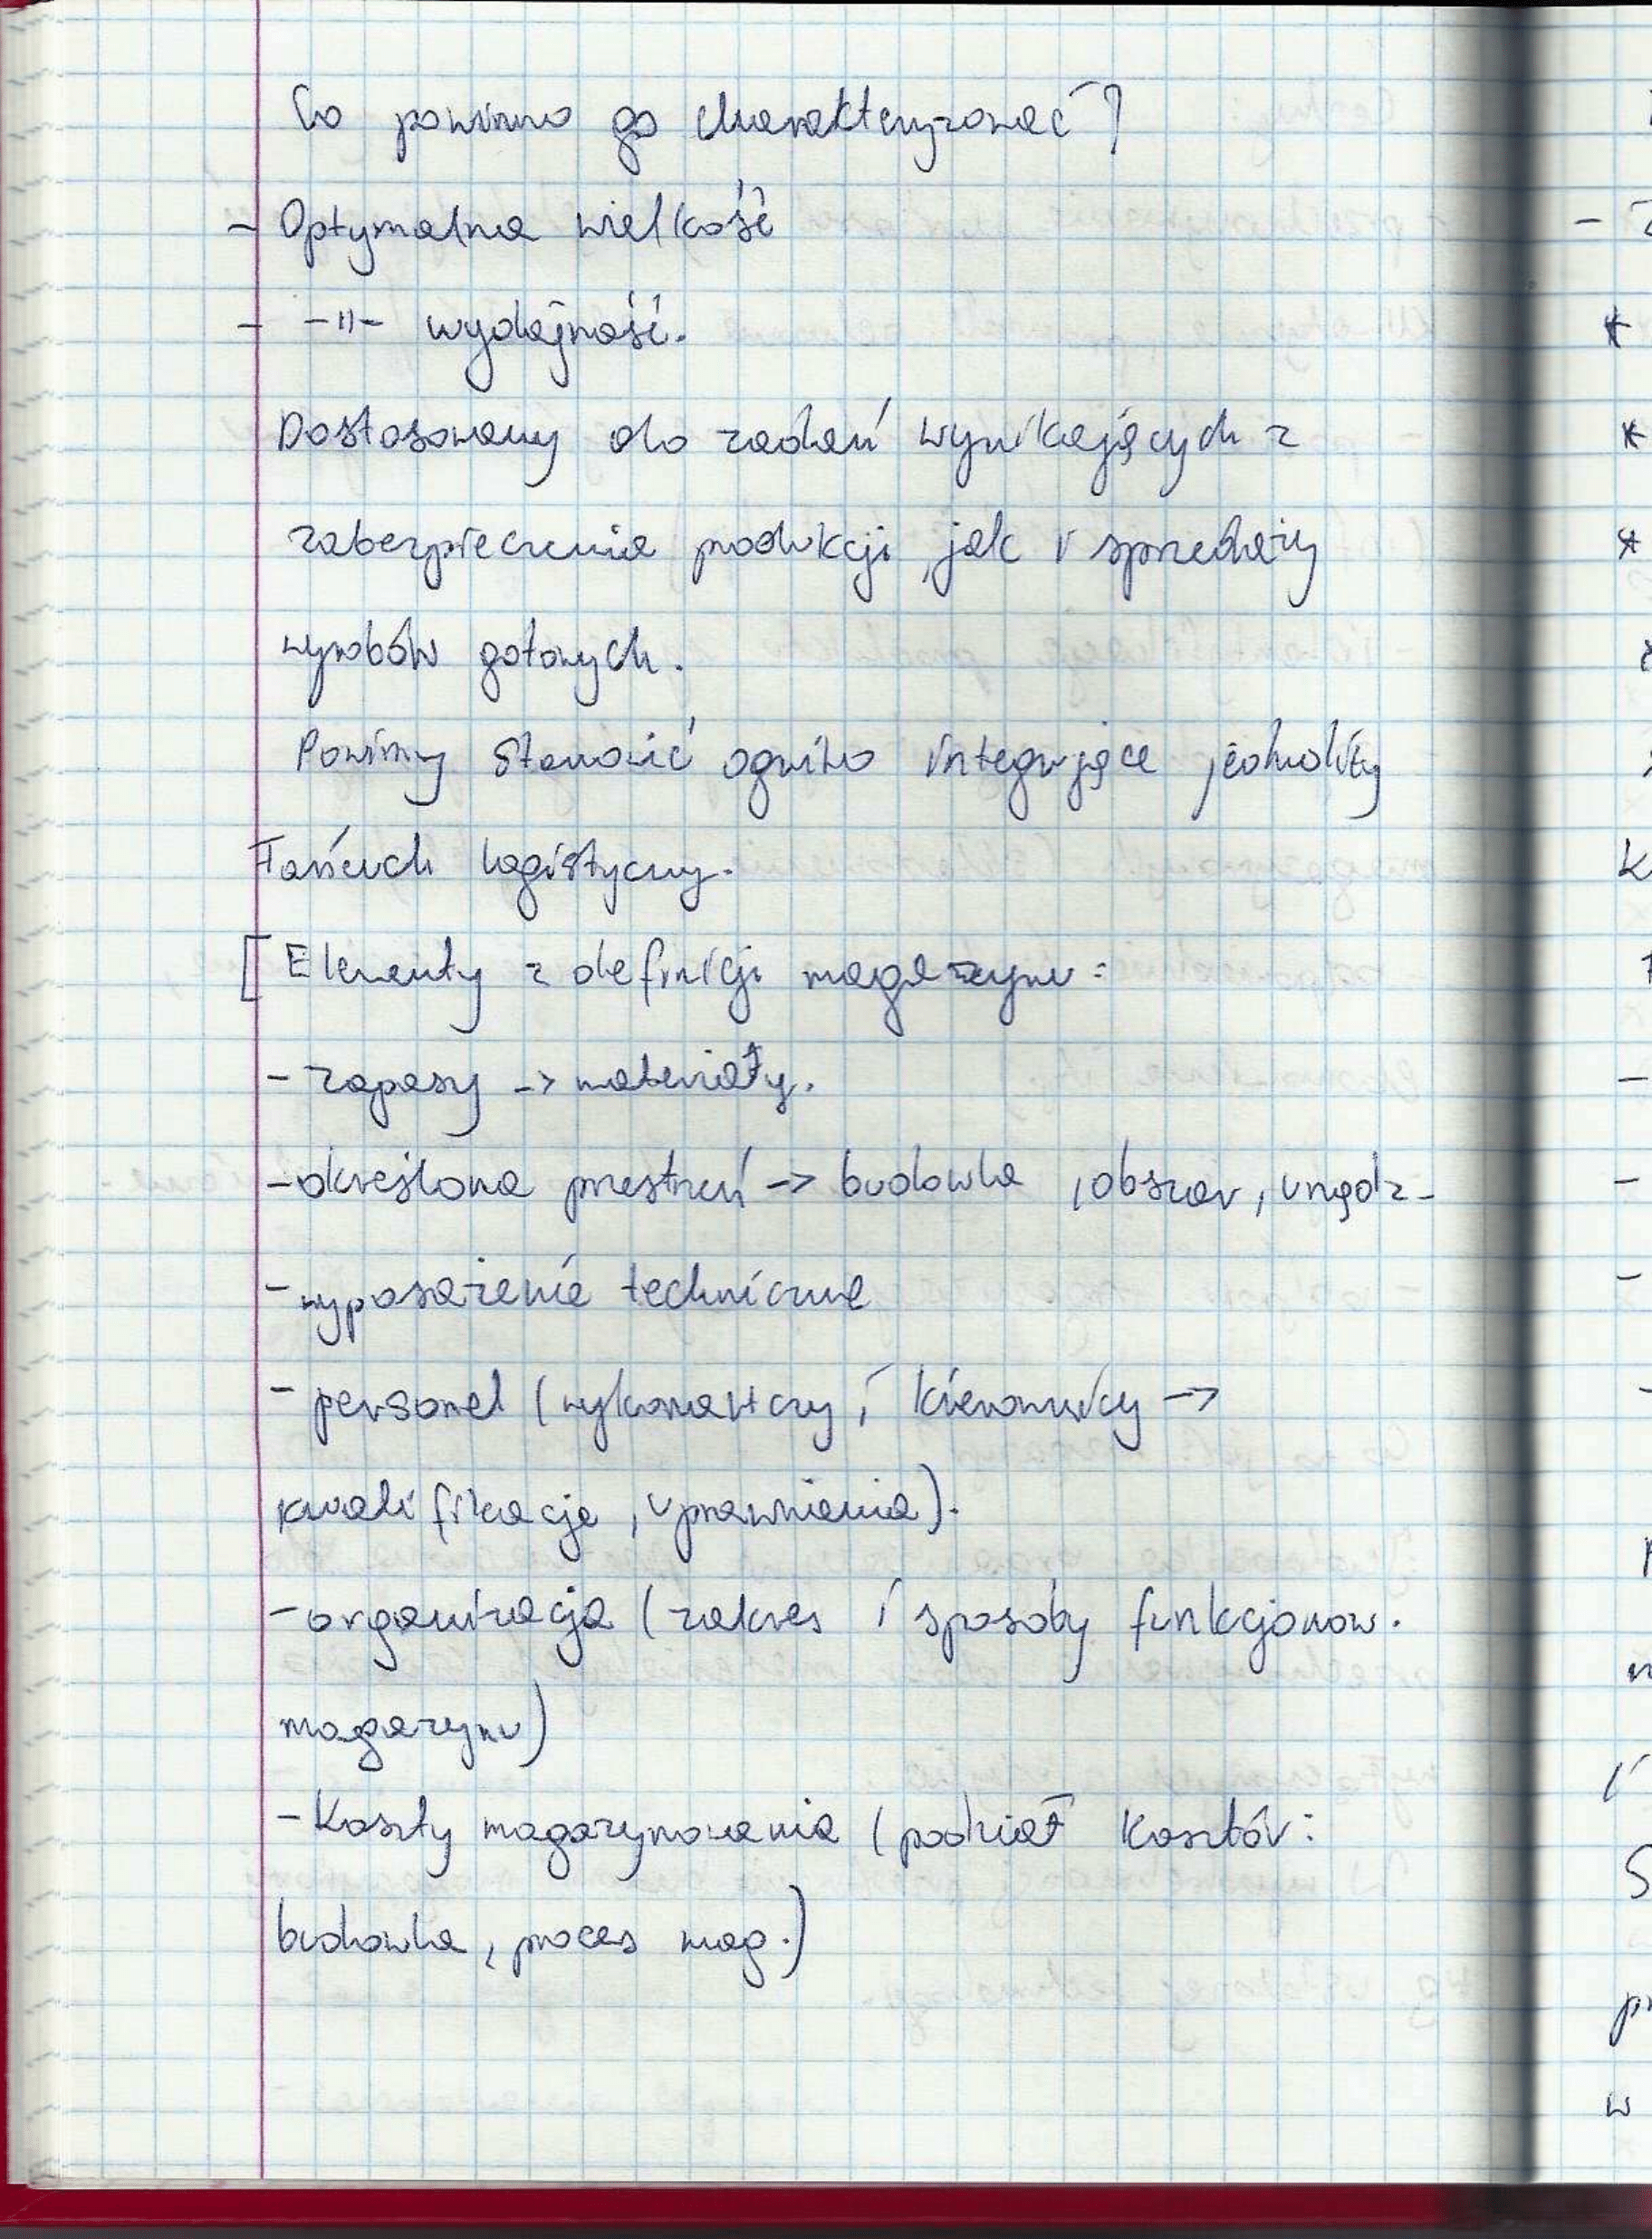 Co powinno go charakteryzować?
- Optymalna wielkość
- -"- wydajność.
Dostosowany do zadań wynikających z
zabezpieczenia produkcji, jak i sprzedaży
wyrobów gotowych.
Powinny stanowić ogniwo integrujące jednolity
łańcuch logistyczny.
[Elementy z definicji magazynu:
- zapasy -> materiały.
- określona przestrzeń -> budowla, obszar, urządz-
- wyposażenie techniczne
- personel (wykonawczy i kierowniczy ->
kwalifikacje, uprawnienia).
- organizacja (zakres i sposoby funkcjonow.
magazynu)
- Koszty magazynowania (podział kosztów:
budowla, proces mag.)